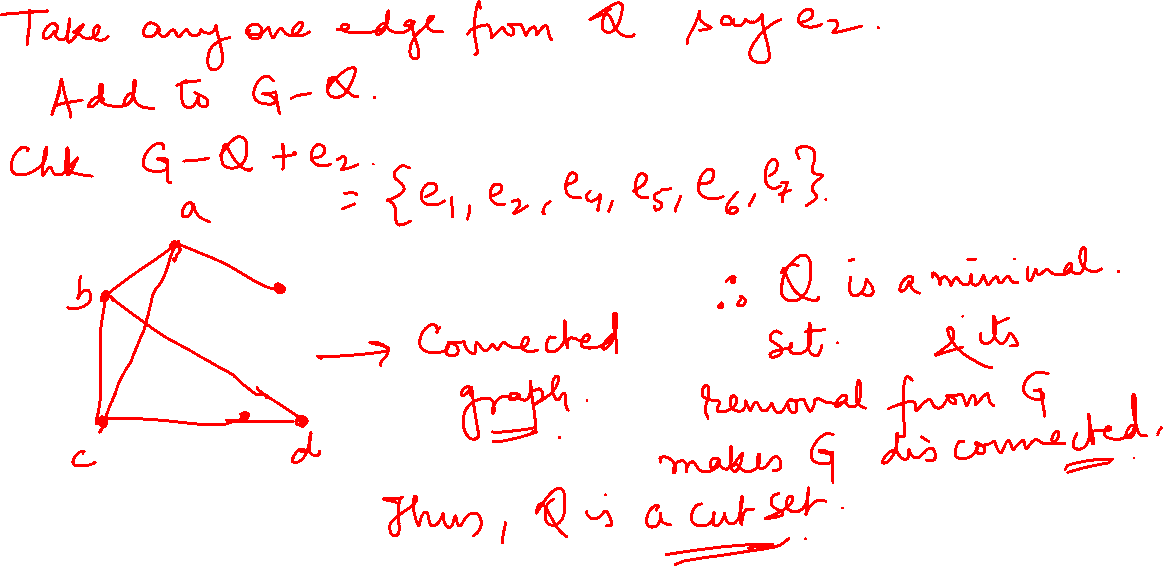 Take any one edge from Q say e₂.
Add to G-Q.
Chk G-Q+e₂.
= {e₁, e₂, e₄, e₅, e₆, e₇}
a
b
c
d
→ Connected
graph.
∴ Q is a minimal
set. & its
removal from G
makes G disconnected.
Thus, Q is a cut set.